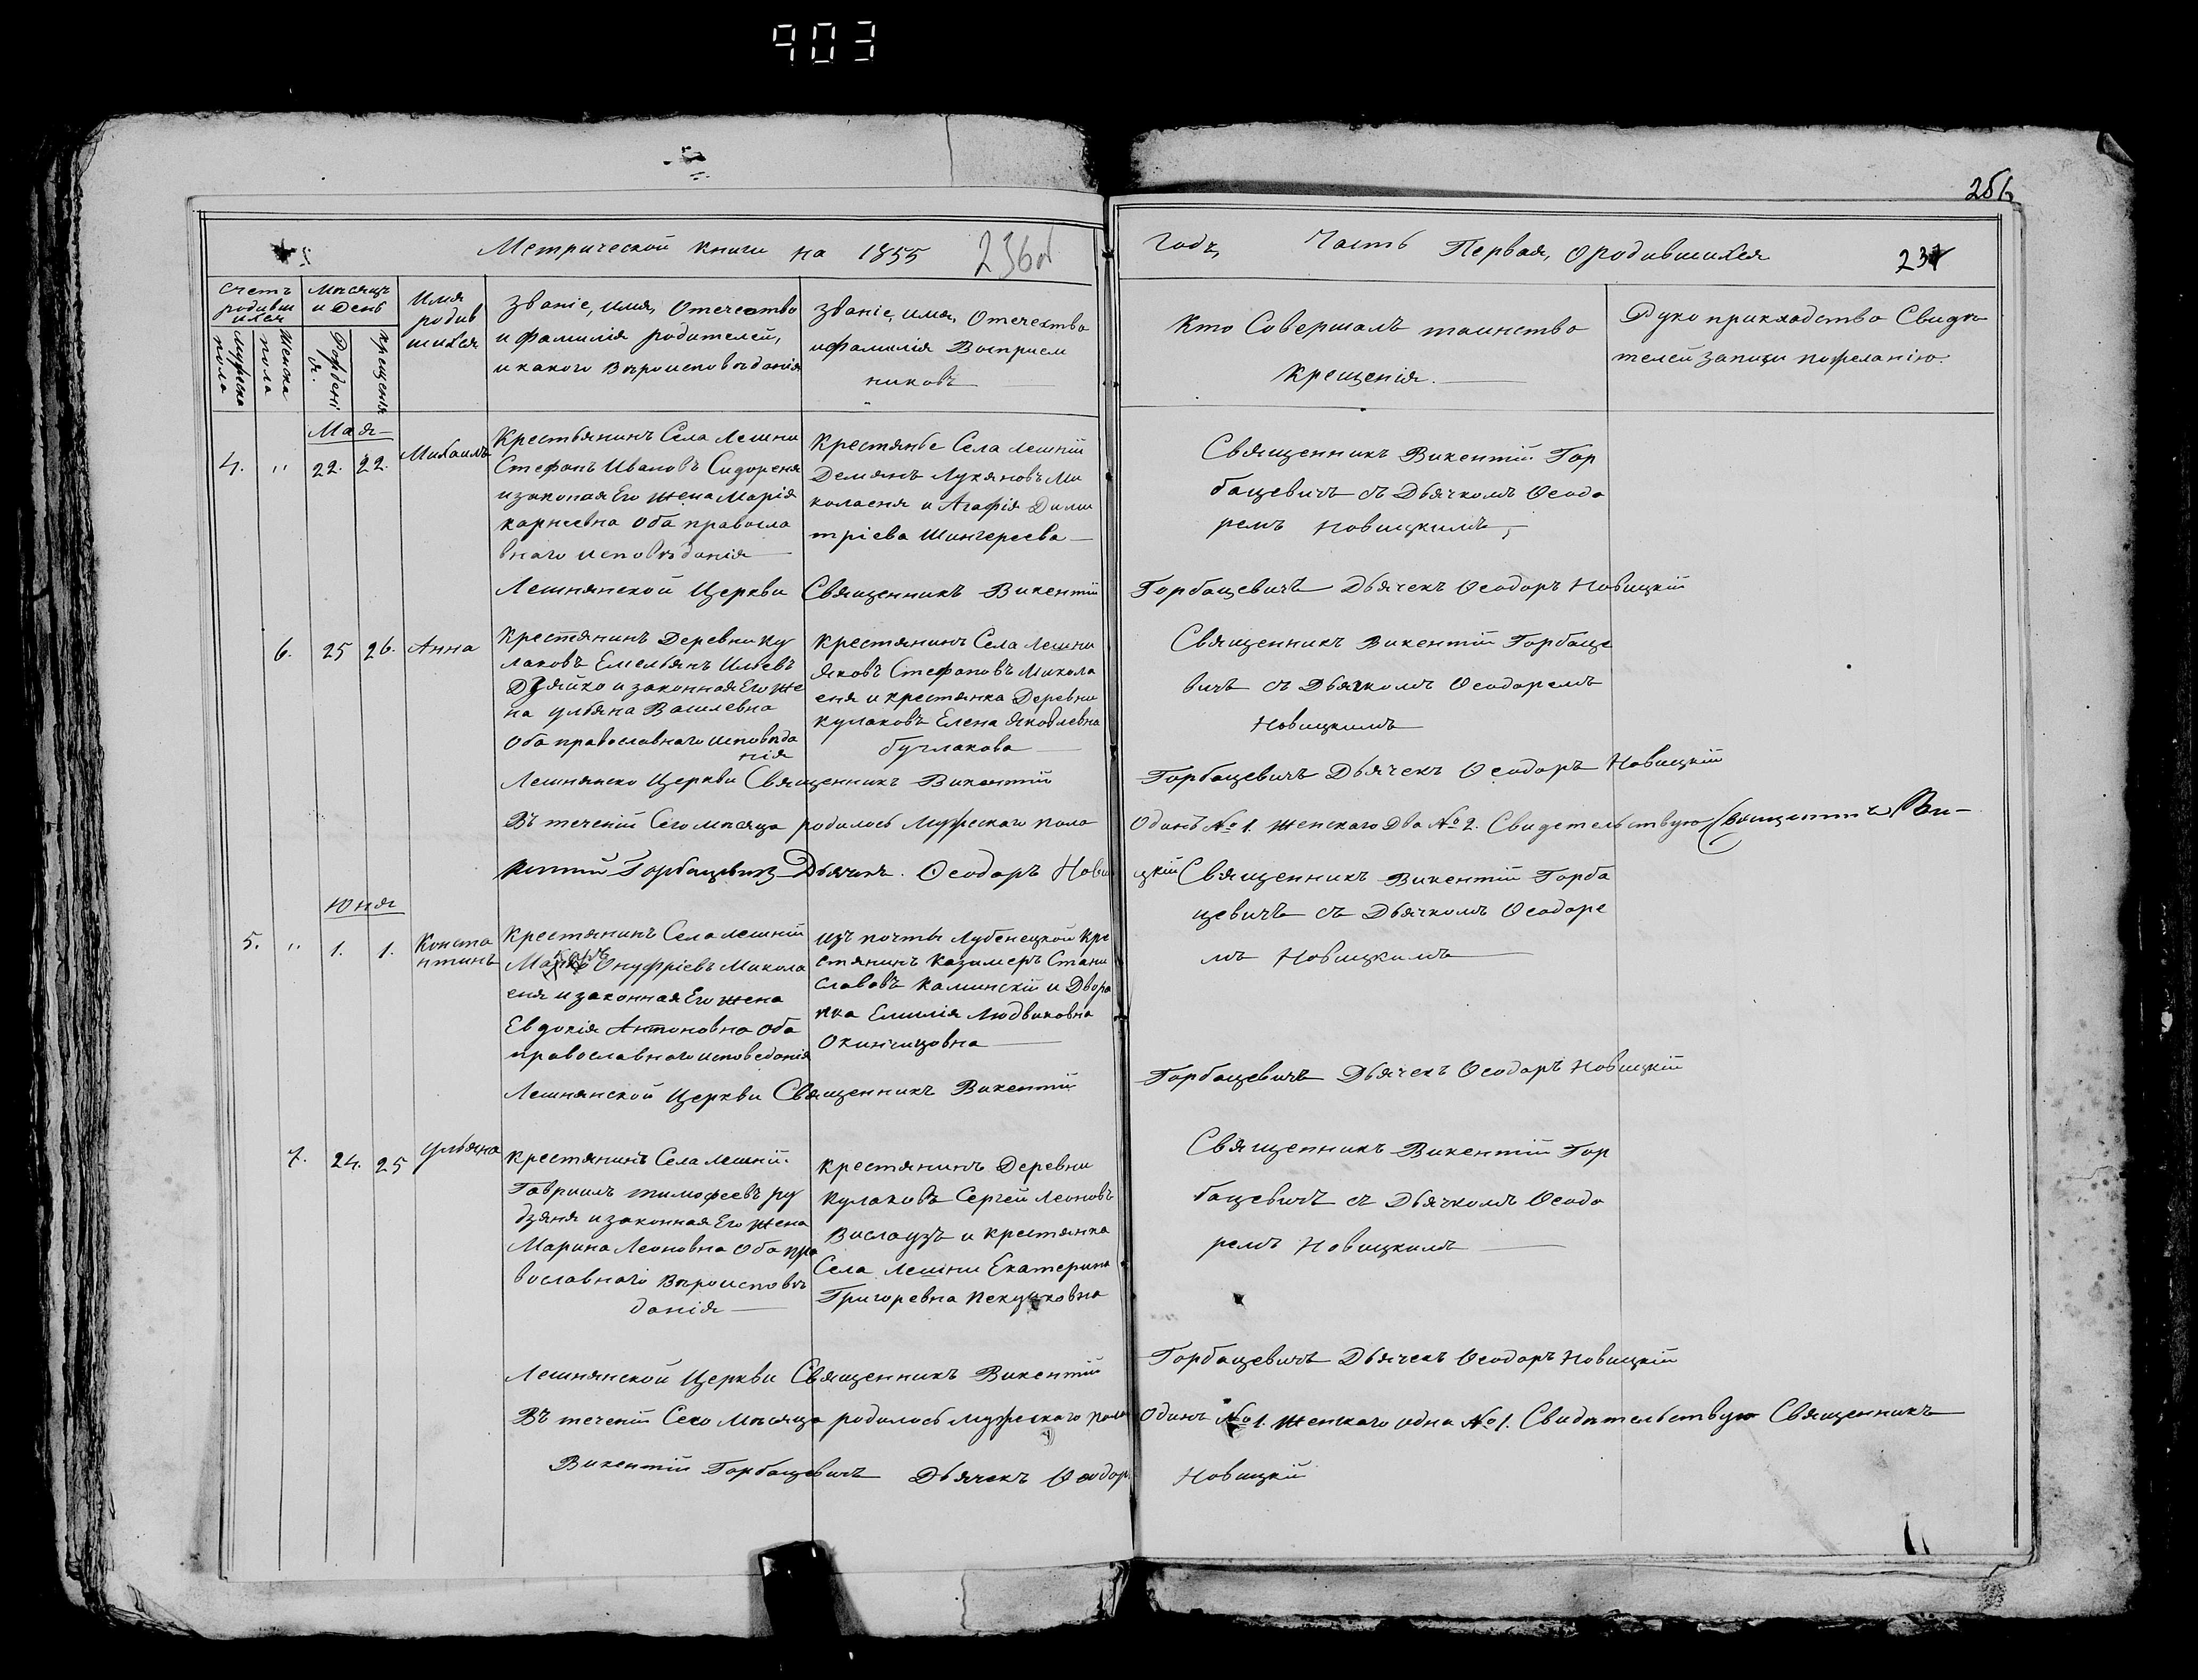 903
256
Метрической книги на 1855
236об
годъ, Часть Первая, о родившихся
237
Счетъ родивш ихся
Мужеска пола
Женска пола
Мѣсяцъ и День
Рожденія.
Крещенія
Имя родив шихся
Званіе, имя, Отечество
и фамилія родителей,
и какого вѣроисповѣданія
Званіе, имя, Отечество
и фамилія Воспріем
никовъ
Кто Совершалъ таинство
Крещенія.
Руко прикладство Свидѣ
телей записи по желанію.
Мая
4. " 22. 22. Михаилъ
Крестьянинъ Села Лешни
Стефанъ Ивановъ Сидореня
и законая Его жена Марія
Карнеевна Оба правосла
внаго исповѣданія
Крестянье Села Лешній
Демянъ Лукяновъ Ми
коласня и Агафія Дими
тріева Шингереева
Священникъ Викентій Гор
бацевичъ съ Дьячкомъ Ѳеодо
ромъ Новицкимъ,
Лешнянской Церкви Священникъ Викентій Горбацевичъ Дьячекъ Ѳеодоръ Новицкій
6. 25 26. Анна
Крестянинъ Деревни Ку
лаковъ Емельянъ Ильевъ
Дзяйко и законная Его же
на Ульяна Вашлевна
Оба православнаго исповѣда
нія
Крестянинъ Села Лешни
Яковъ Стефановъ Микола
еня и крестянка Деревни
Кулаковъ Елена Яковлевна
Буглакова
Священникъ Викентій Горбаце
вичъ съ Дьячкомъ Ѳеодоромъ
Новицкимъ
Лешнянско Церкви Священникъ Викентій Горбацевичъ Дьячекъ Ѳеодоръ Новицкій
Въ теченій Сего мѣсяца родилось Мужескаго пола Одинъ № 1. Женскаго Два № 2. Свидетельствую Священникъ Ви-
кентій Горбацевичъ Дьячекъ. Ѳеодоръ Новицкій
Юня
5. " 1. 1. Конста
нтинъ
Крестянинъ Села Лешній
Онуфріевъ Микола
еня и законная Его жена
Евдокія Антоновна Оба
православнаго исповеданія
изъ почты Лубенецкой Кре
стянинъ Казимеръ Стани
славовъ Каминскій и Дворя
нка Емилія Людвиковна
Окинчицовна
Священникъ Викентій Горба
цевичъ съ Дьячкомъ Ѳеодоро
мъ Новицкимъ
Лешнянской Церкви Священникъ Викентій Горбацевичъ Дьячекъ Ѳеодоръ Новицкій
7. 24. 25 Ульяна
Крестянинъ Села Лешній
Гавриилъ Тимофеевъ Ру
дзяня и законная Его жена
Марина Леоновна Оба пра
вославнаго вѣроисповѣ
данія
Крестянинъ Деревни
Кулаковъ Сергей Леоновъ
Вислоузъ и крестянка
Села Лешни Екатерина
Григоревна
Священникъ Викентій Гор
бацевичъ съ Дьячкомъ Ѳеодо
ромъ Новицкимъ
Лешнянской Церкви Священникъ Викентій Горбацевичъ Дьячекъ Ѳеодоръ Новицкій
Въ теченій Секо Мѣсяца родилось мужескаго пола Одинъ № 1. женскаго одна № 1. Свидѣтельствую Священникъ
Викентій Горбацевичъ Дьячекъ Ѳеодоръ Новицкій